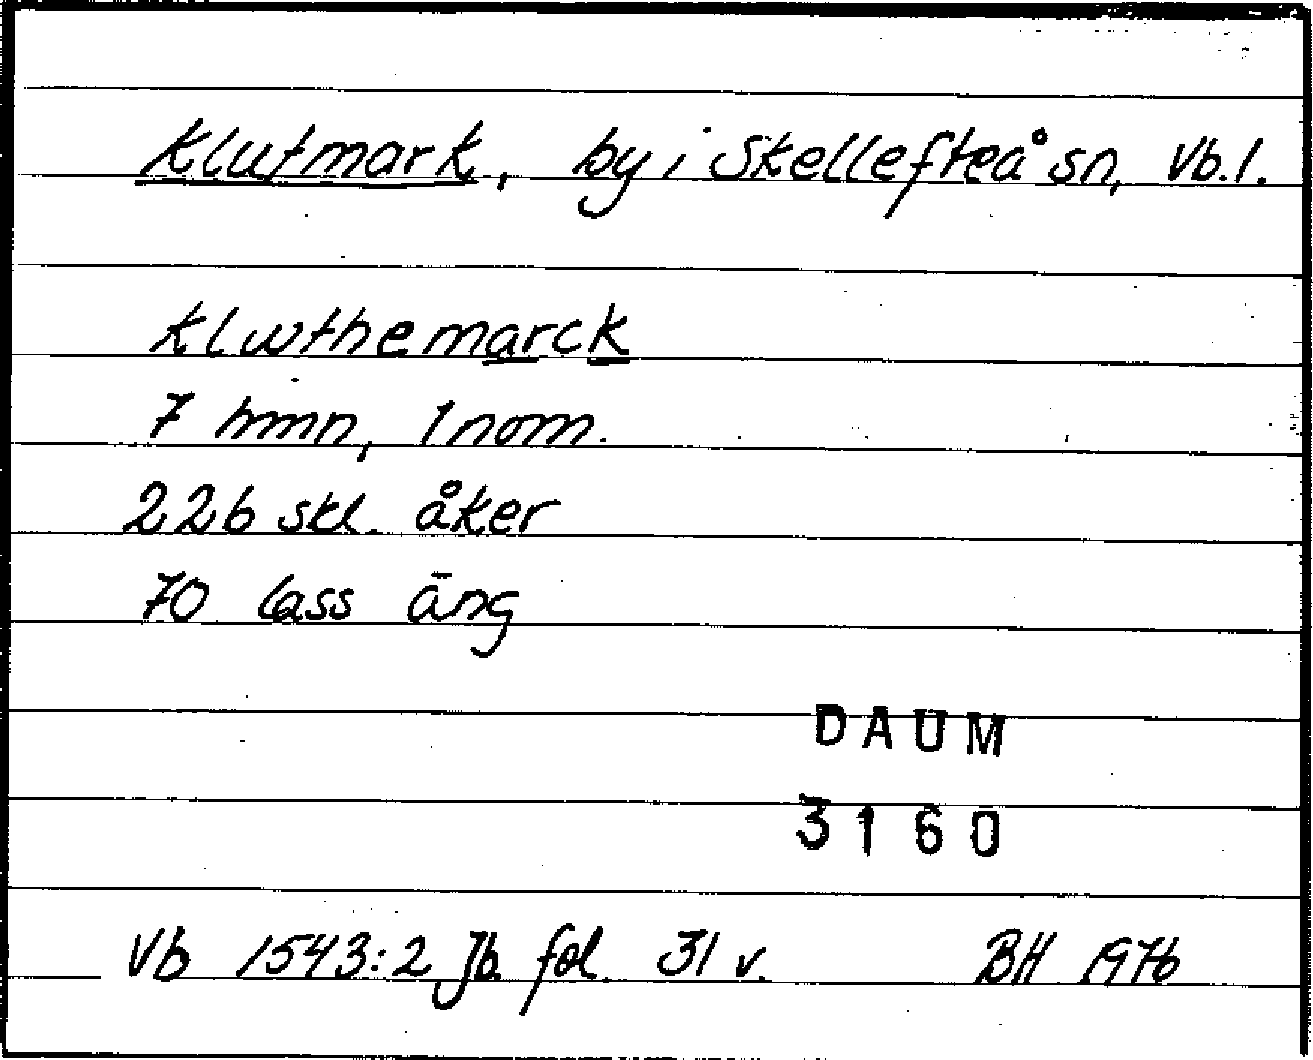 Klutmark, by i Skellefteå sn, Vb.l.
Klwthemarck
7 hmn, 1 nom.
226 skl. åker
70 lass äng
DAUM
3160
Vb 1543:2 Jb. fol. 31 v. BH 1976